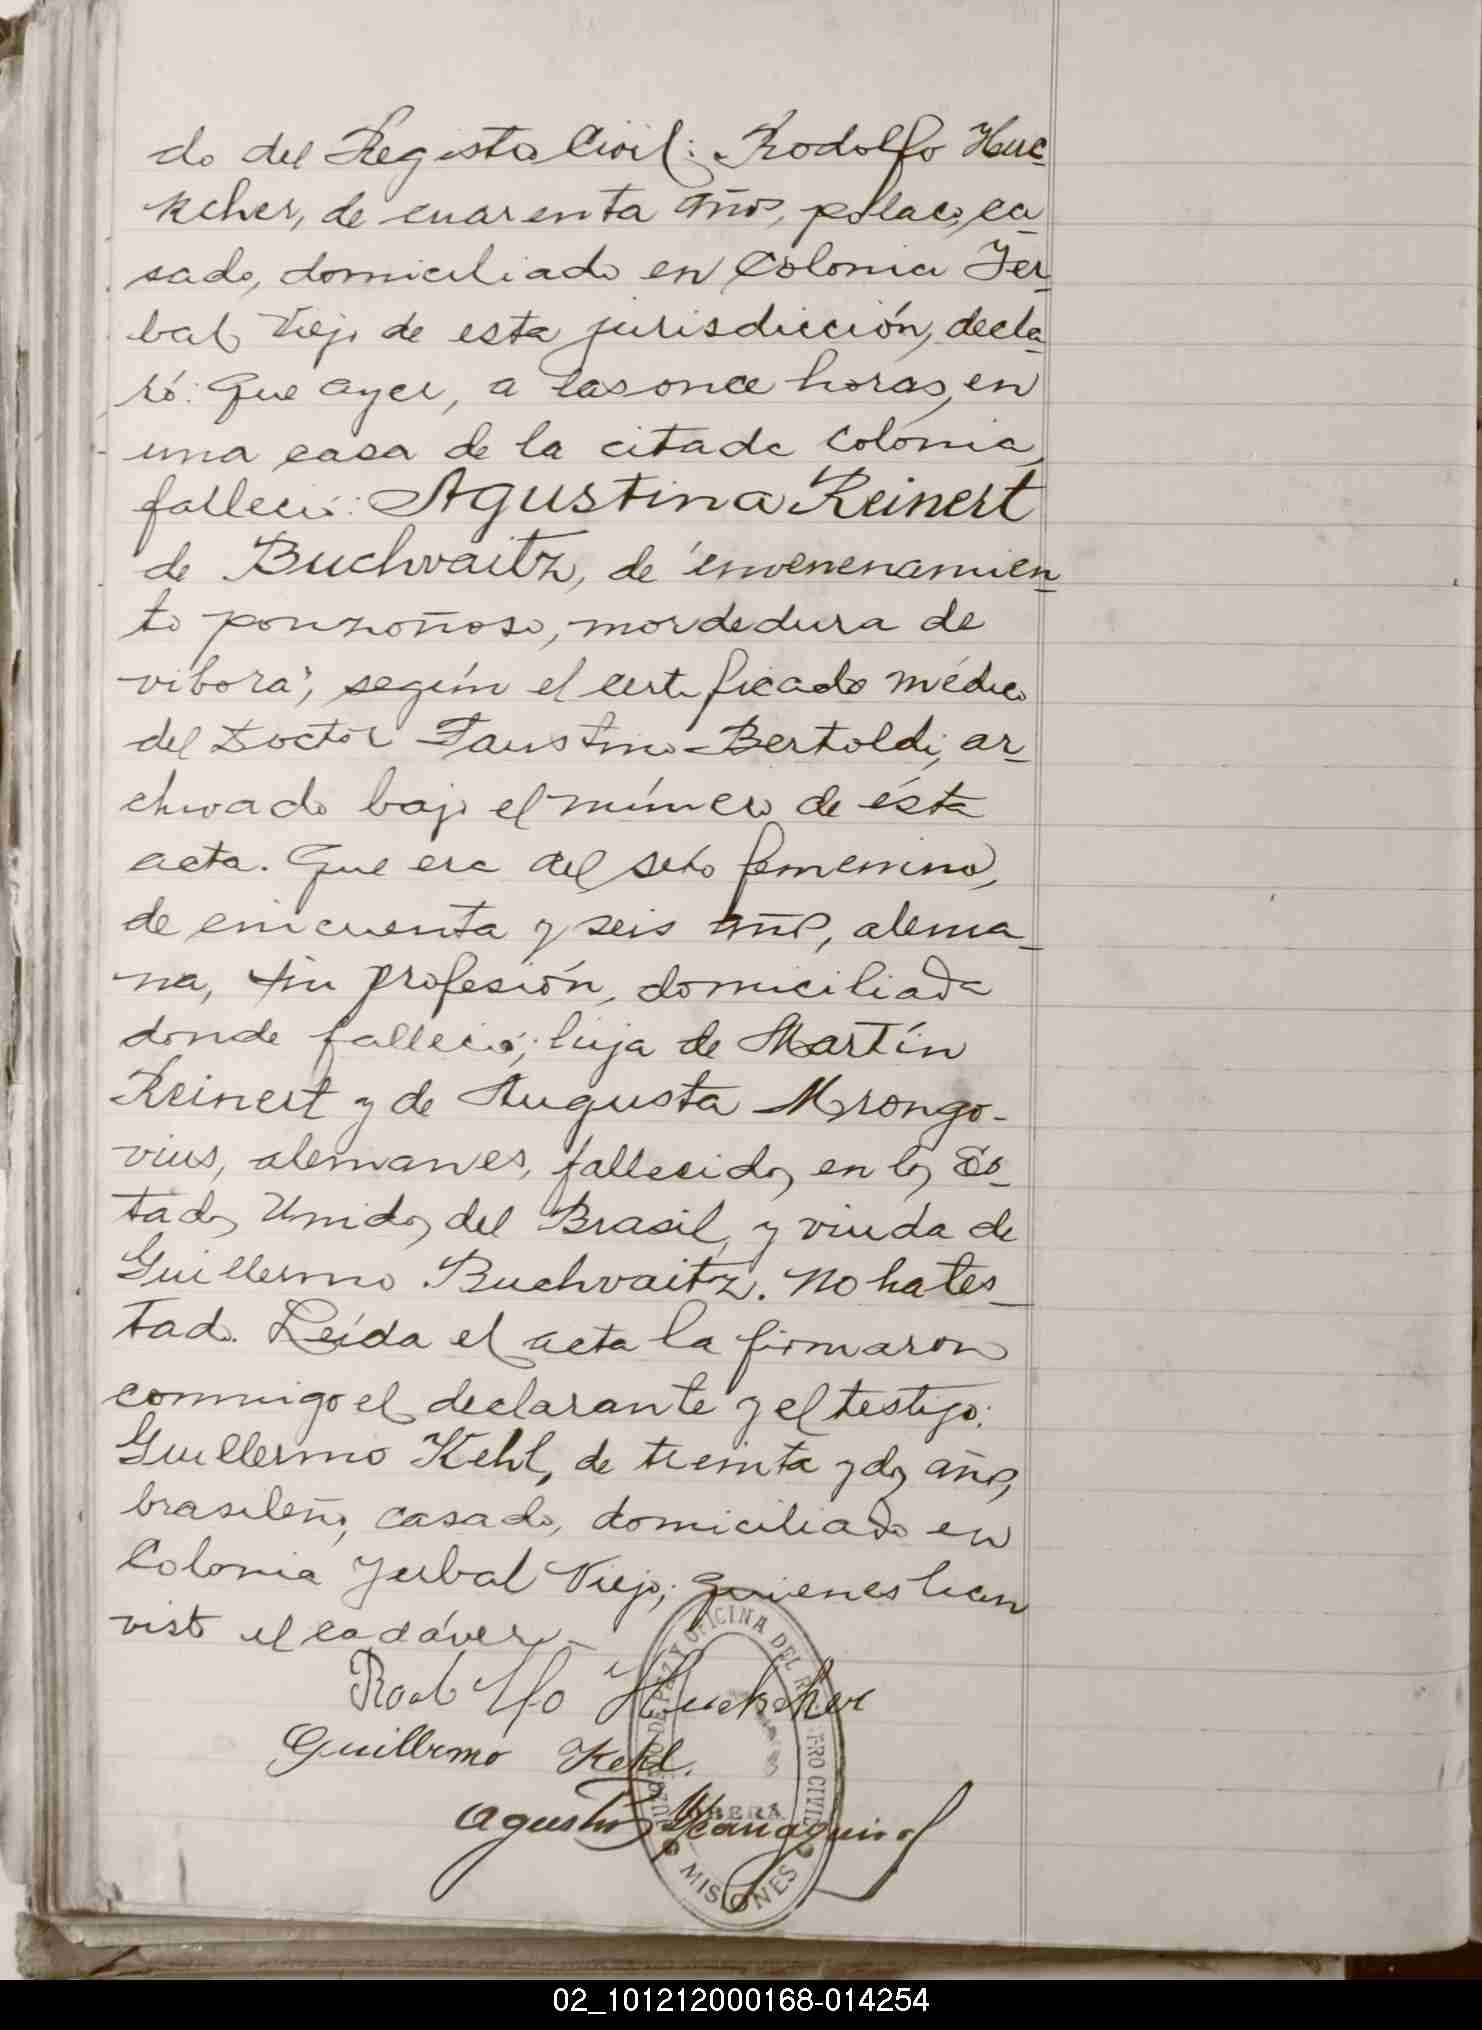 do del Registro Civil: Rodolfo Huc-
kcher, de cuarenta años, polaco, ca-
sado, domiciliado en Colonia Yer-
bal Viejo de esta jurisdicción, decla-
ró: Que ayer, a las once horas, en
una casa de la citada colonia,
falleció: Agustina Reinert
de Buchvaitz, de "envenenamien-
to ponzoñoso, mordedura de
vibora", según el certificado médico
del Doctor Faustino Bertoldi, ar-
chivado bajo el número de ésta
acta. Que era del sexo femenino,
de cincuenta y seis años, alema-
na, sin profesión, domiciliada
donde falleció; hija de Martín
Reinert y de Augusta Mrongo-
vius, alemanes, fallecidos en los Es-
tados Unidos del Brasil, y viuda de
Guillermo Buchvaitz. No ha tes-
tado. Leída el acta la firmaron
conmigo el declarante y el testigo:
Guillermo Kehl, de treinta y dos años,
brasileño, casado, domiciliado en
Colonia Yerbal Viejo; quienes han
visto el cadáver.-
Rodolfo Huckcher
Guillermo Kehl.
Agustín
JUZGADO DE PAZ Y OFICINA DEL REGISTRO CIVIL
OBERÁ
MISIONES
02_101212000168-014254